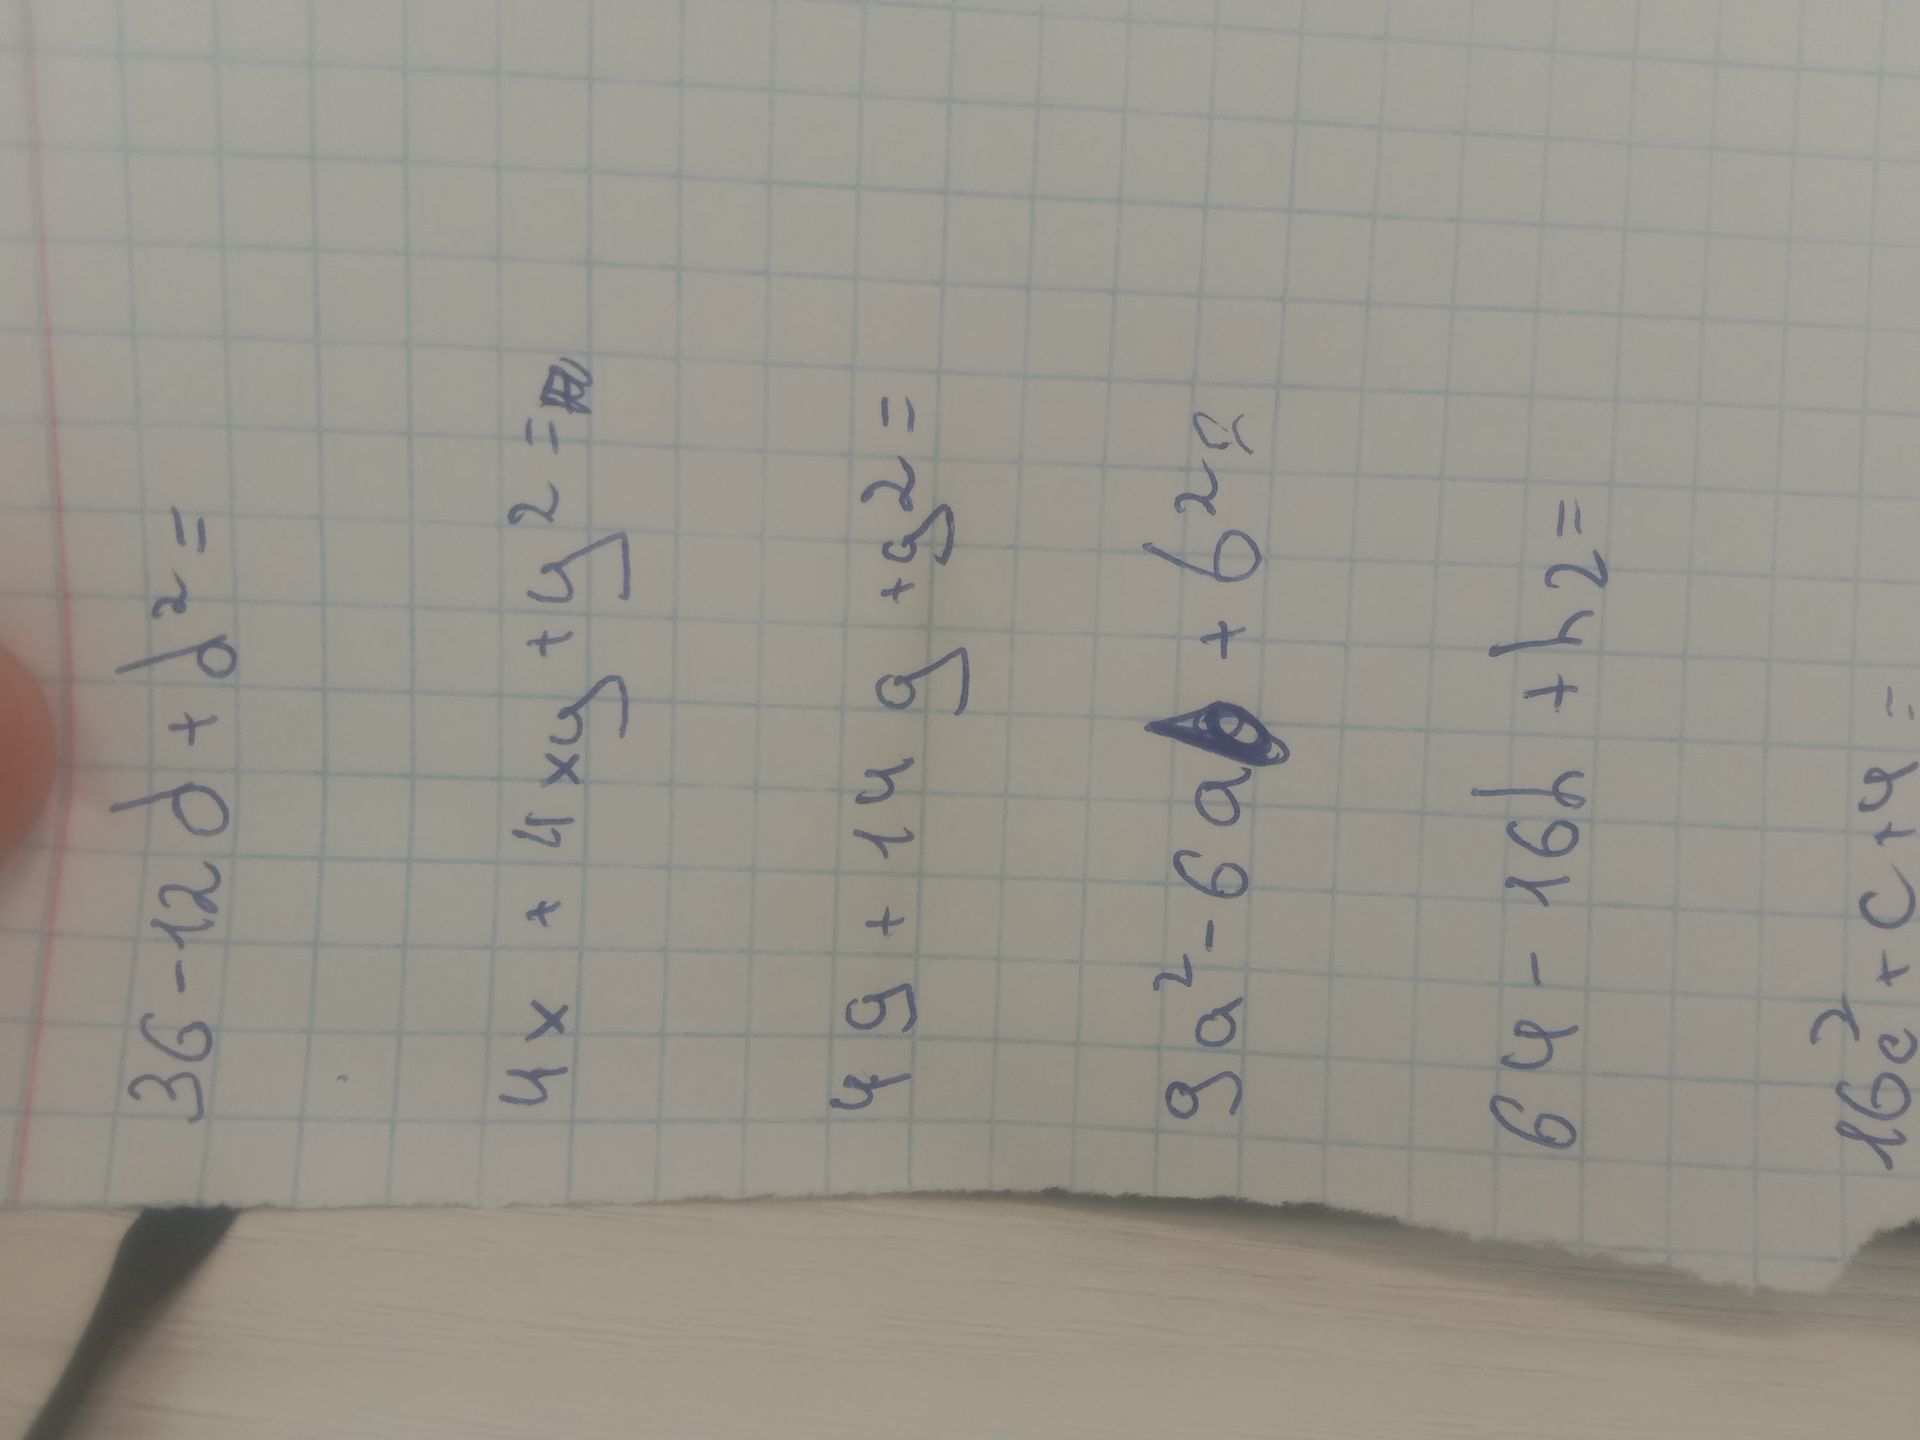 36-12d+d²=
4x + 4xy + y²=
49 + 14g + g²=
9a²-6ab + b²=
64 - 16h + h²=
16c² + c + 4 =